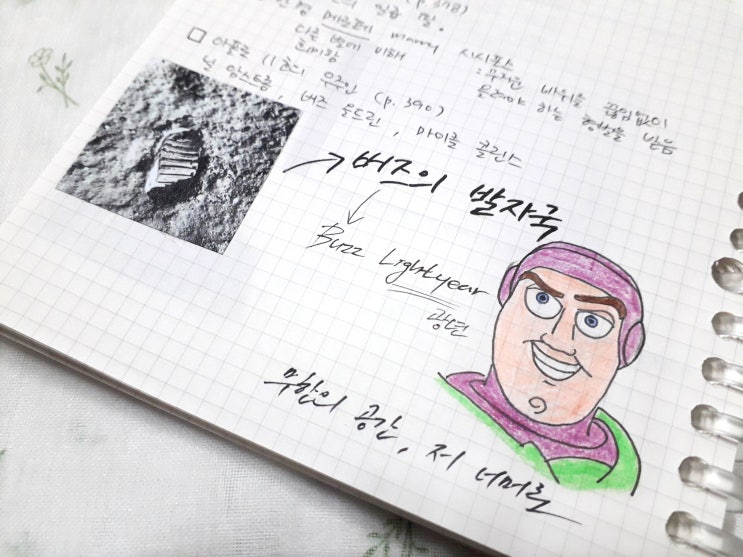 (p.378)
메르페 marry
시시포스
디폴 별에 비해
: 무거운 바위를 끊임없이
희미함
올려야 하는 형벌을 받음
□ 아폴로 11호의 우주인 (p.390)
닐 암스트롱, 버즈 올드린, 마이클 콜린스
→ 버즈의 발자국
Buzz Lightyear
광년
무한의 공간, 저 너머로